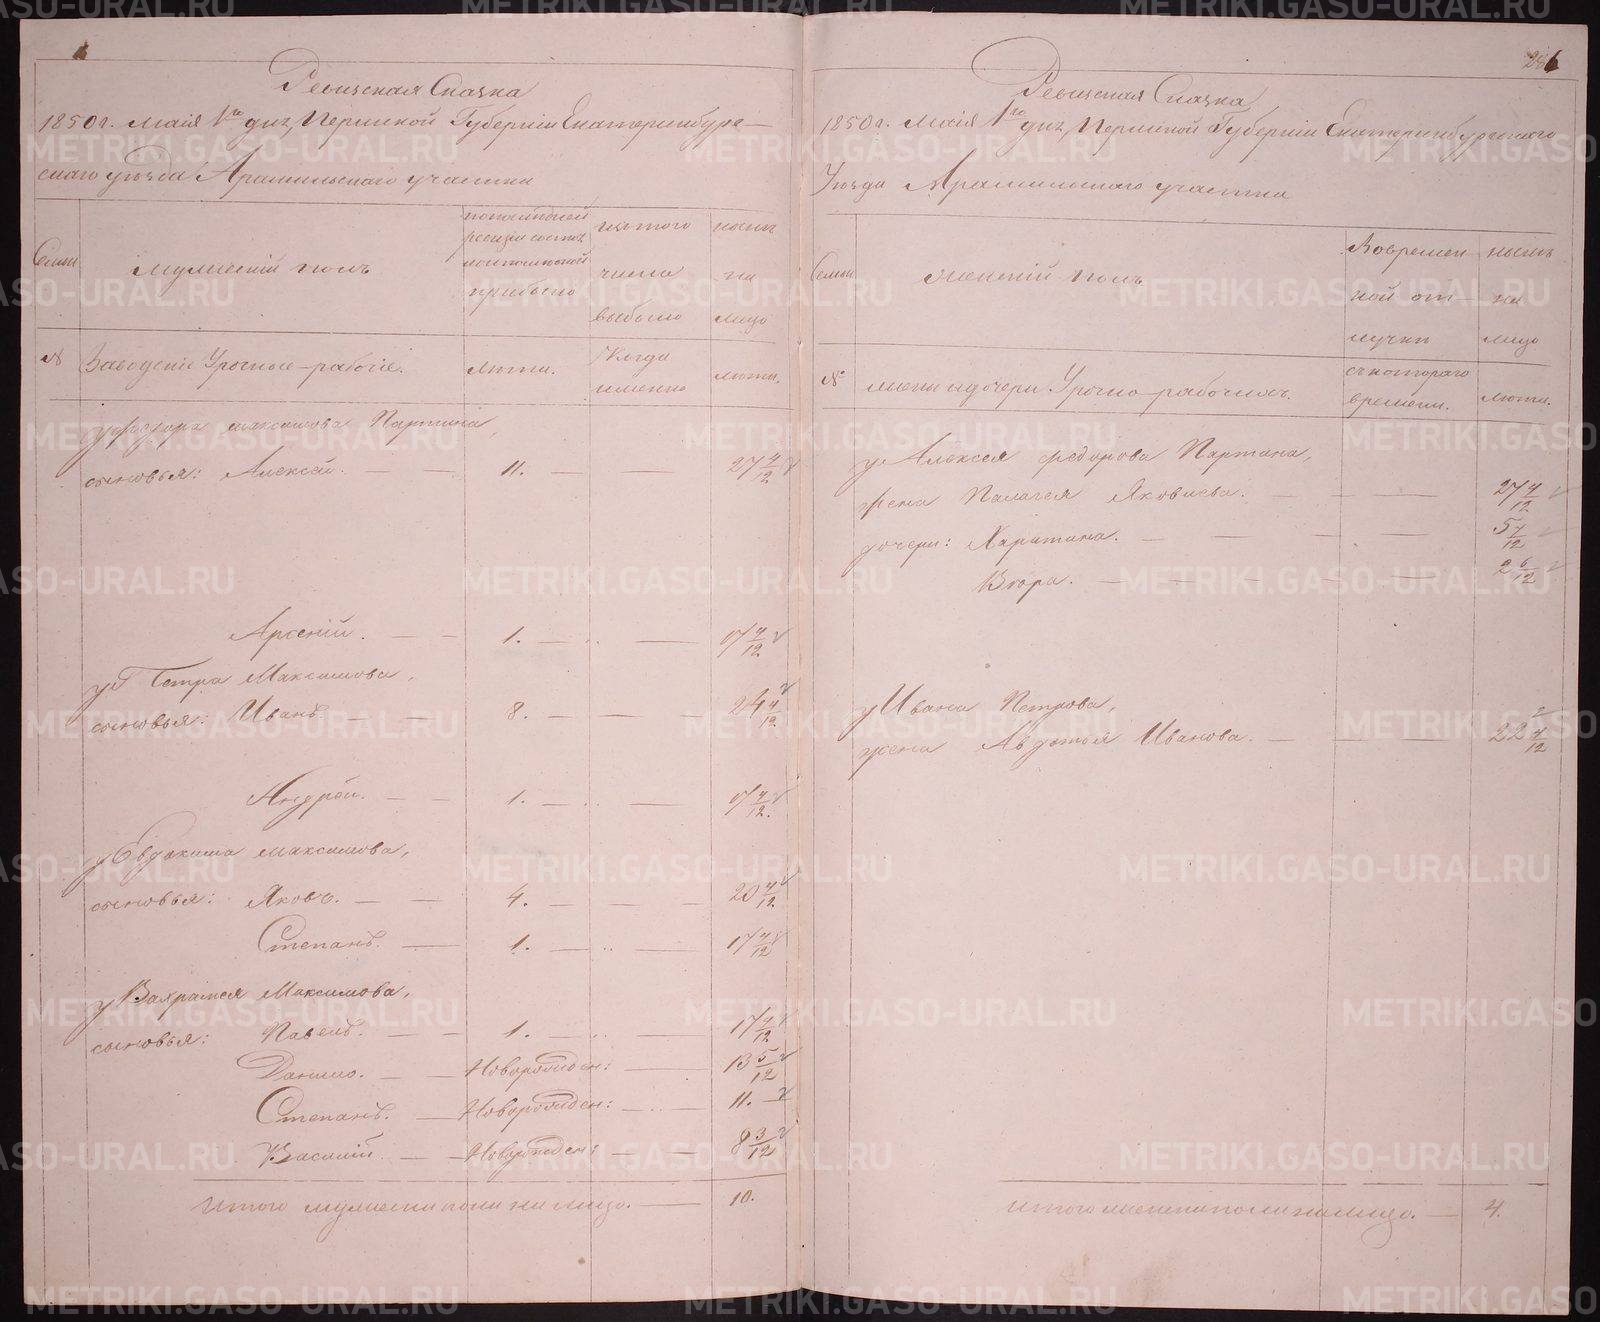 Ревизская Сказка
1850 г. маія 1го дня, Пермской Губерніи Екатеринбург-
скаго уѣзда Арамильскаго участка
Семьи
мужескій полъ
по последней
ревизіи состоя
ло и после оной
прибыло
изъ того
числа
выбыло
нынѣ
на
лицо
№
Заводскіе Урочные-рабочіе.
лѣта.
Когда
именно
лѣта.
у Федора Максимова Партина,
сыновья: Алексѣй. 11. 27 4/12
Арсеній. 1. 17 4/12
у Петра Максимова,
сыновья: Иванъ. 8. 24 4/12
Андрей. 1. 17 4/12.
у Евдокима Максимова,
сыновья: Яковъ. 4. 20 4/12
Степанъ. 1. 17 4/12
у Вахрамея Максимова,
сыновья: Павелъ. 1. 17 4/12
Данило. Новорожден: 13 5/12
Степанъ. Новорожден: 11.
Василій. Новорожден: 8 3/12
Итого мужеска пола на лицо. 10.
Ревизская Сказка
1850 г. Маія 1го дня, Пермской Губерніи Екатеринбургскаго
Уѣзда Арамильскаго участка
Семьи
Женскій полъ
Во времен
ной от-
лучки
нынѣ
на
лицо
№
жены и дочери Урочно-рабочихъ.
съ котораго
времени.
лѣта.
у Алексея Федорова Партина,
жена Палагея Яковлева. 27 4/12
дочери: Харитина. 5 7/12
Вѣра. 2 6/12
у Ивана Петрова,
жена Авдотья Иванова. 22 4/12
Итого женска пола на лицо. 4.
METRIKI.GASO-URAL.RU